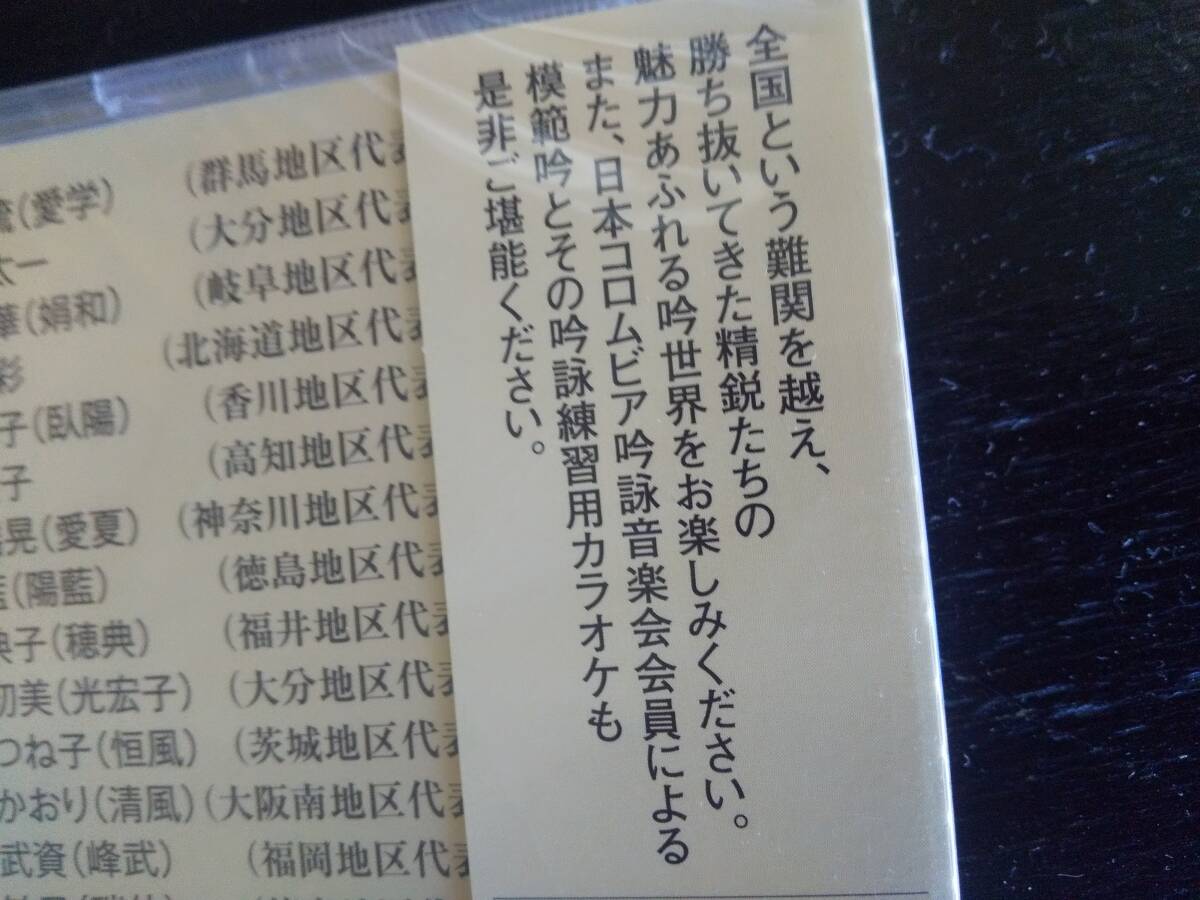 全国という難関を越え、
勝ち抜いてきた精鋭たちの
魅力あふれる吟世界をお楽しみください。
また、日本コロムビア吟詠音楽会会員による
模範吟とその吟詠練習用カラオケも
是非ご堪能ください。
(愛学) (群馬地区代表
太一 (大分地区代表
華(娟和) (岐阜地区代表
彩 (北海道地区代表
子(臥陽) (香川地区代表
子 (高知地区代表
晃(愛夏) (神奈川地区代表
藍(陽藍) (徳島地区代表
映子(穂典) (福井地区代表
初美(光宏子) (大分地区代表
つね子(恒風) (茨城地区代表
かおり(清風) (大阪南地区代表
武資(峰武) (福岡地区代表